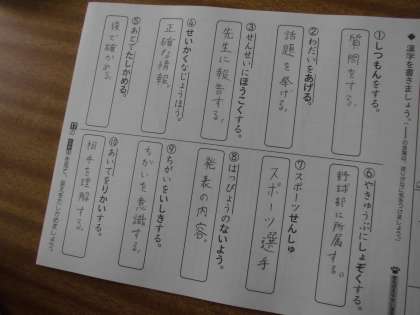 ◆ 漢字を書きましょう。
①しつもんをする。
質問をする。
②わだいをあげる。
話題を挙げる。
③せんせいにほうこくする。
先生に報告する。
④せいかくなじょうほう。
正確な情報。
⑤あとでたしかめる。
後で確かめる。
⑥やきゅうぶにしょぞくする。
野球部に所属する。
⑦スポーツせんしゅ
スポーツ選手
⑧はっぴょうのないよう。
発表の内容。
⑨ちがいをいしきする。
ちがいを意識する。
⑩あいてをりかいする。
相手を理解する。